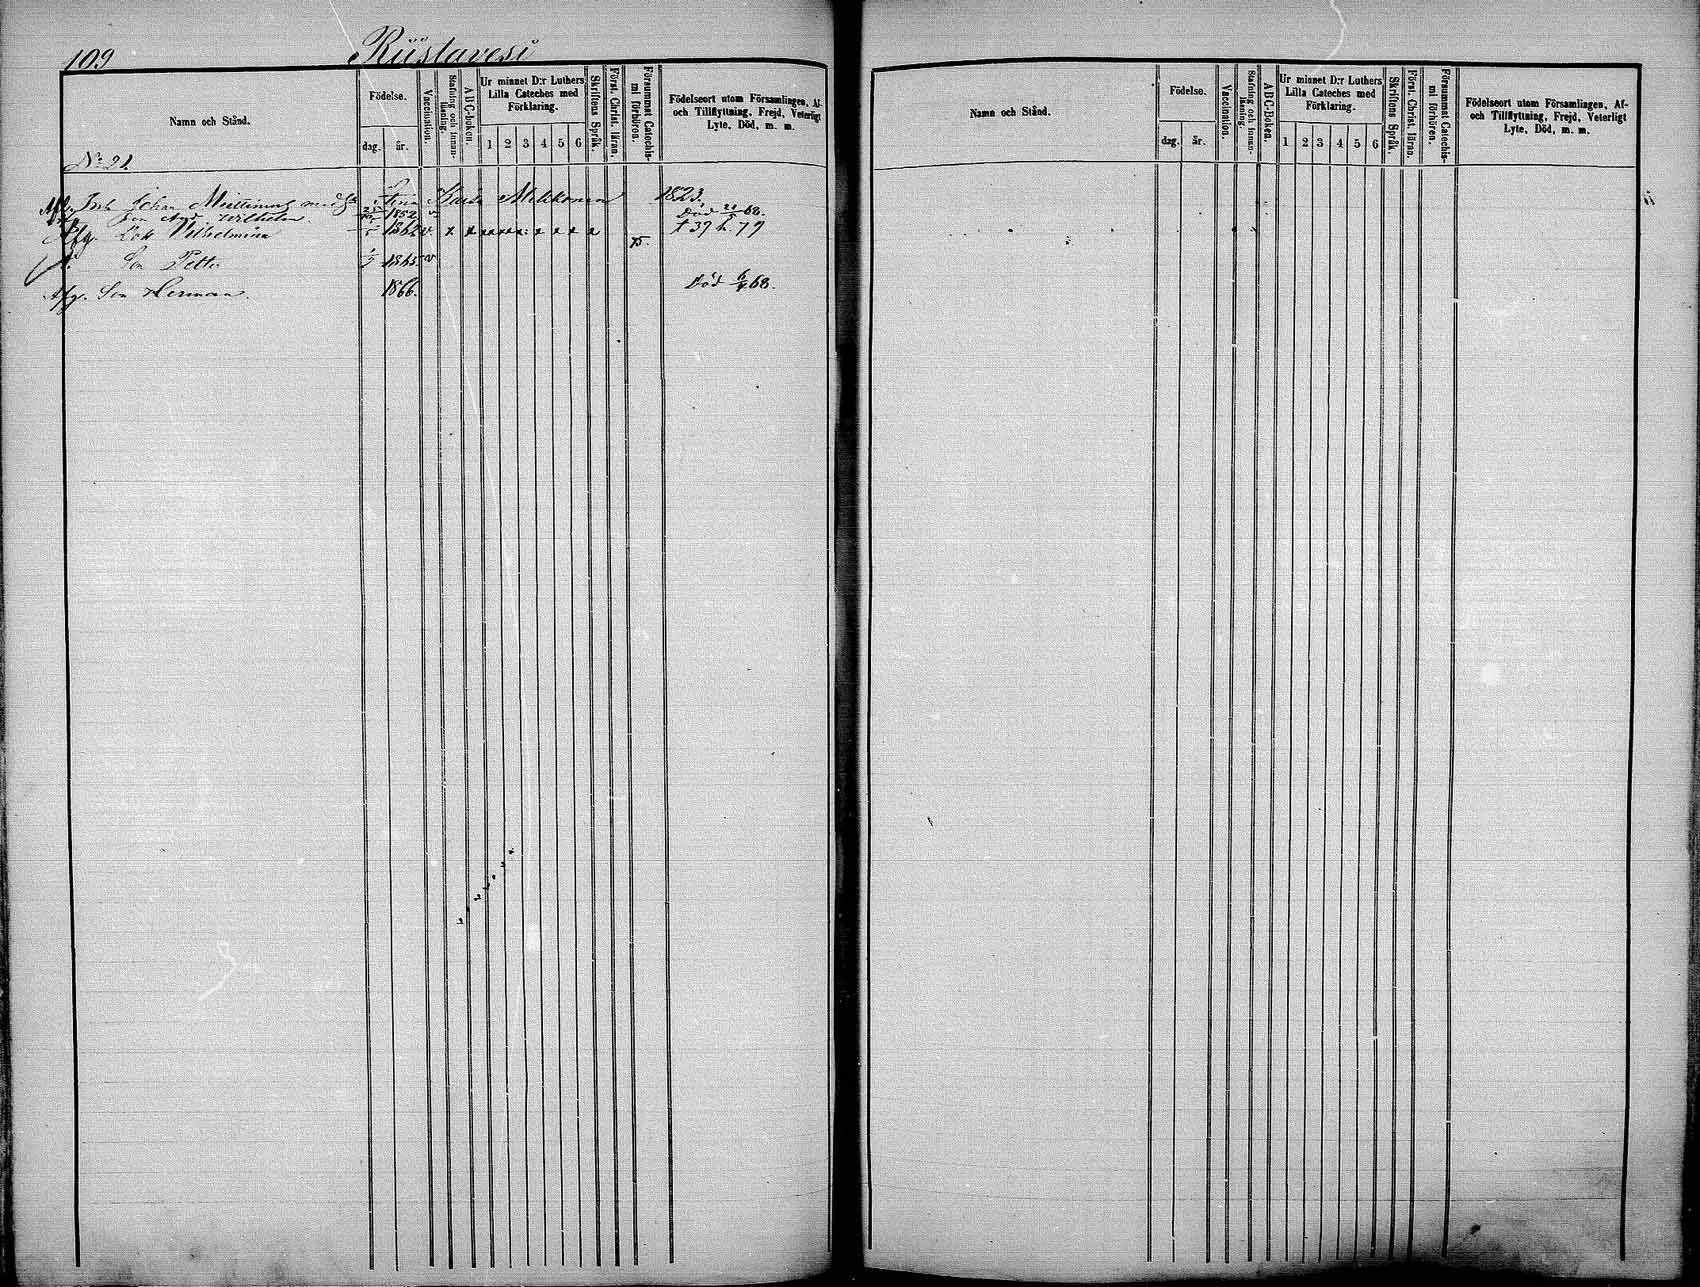 109 Riistavesi
Namn och Stånd.
Födelse.
dag. år.
Vaccination.
Stafning och innan-läsning.
ABC-boken.
Ur minnet D:r Luthers
Lilla Cateches med
Förklaring.
1 2 3 4 5 6
Skriftens Språk.
Först. Christ. läran.
Försummat Catechis-
mi förhören.
Födelseort utom Församlingen, Af-
och Tillflyttning, Frejd, Veterligt
Lyte, Död, m. m.
No 21.
Afg. Inh Johan Miettinens med h. Anna Kaisa Mikkonen 1823.
Son And. Wilhelm. 1852 v Död 68.
Afg. Dott Vilhelmina 1862 v. x x x x x x x x x 75. † 39 h. 79
Son Petter 1865 v
Afg. Son Herman. 1866. Död 68.
Namn och Stånd.
Födelse.
dag. år.
Vaccination.
Stafning och innan-läsning.
ABC-Boken.
Ur minnet D:r Luthers
Lilla Cateches med
Förklaring.
1 2 3 4 5 6
Skriftens Språk.
Först. Christ. läran.
Försummat Catechis-
mi förhören.
Födelseort utom Församlingen, Af-
och Tillflyttning, Frejd, Veterligt
Lyte, Död, m. m.